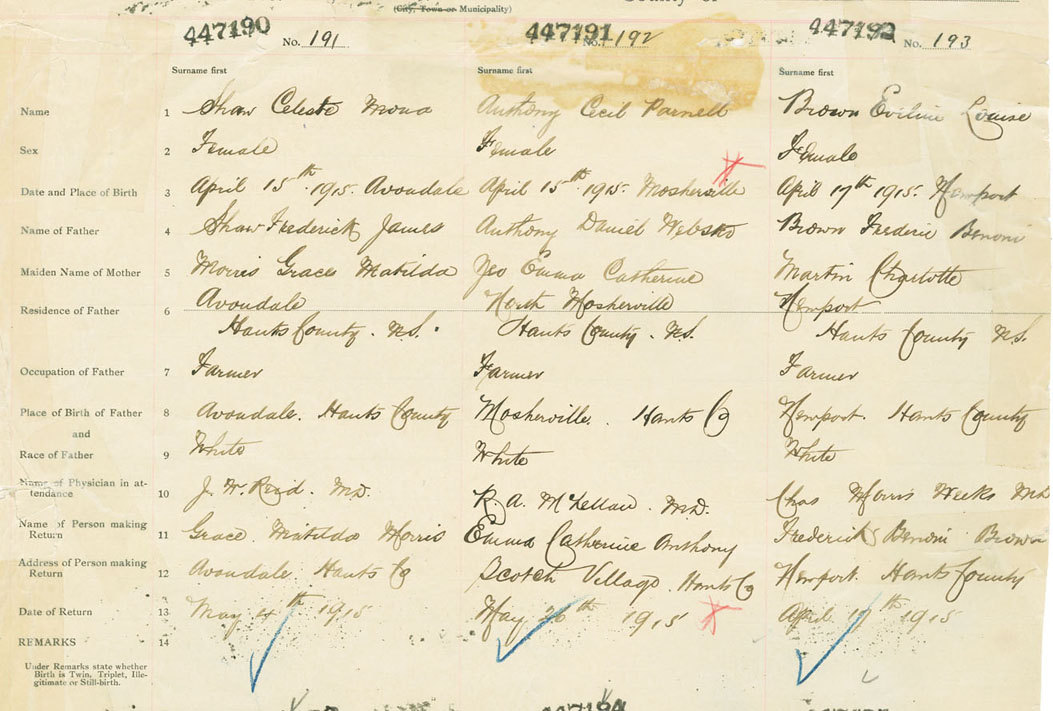 (City, Town or Municipality)
447190 No. 191 447191 No. 192 447192 No. 193
Surname first Surname first Surname first
Name 1 Shaw Celeste Mona Anthony Cecil Parnell Brown Eviline Louise
Sex 2 Female Female Female
Date and Place of Birth 3 April 15th 1915. Avondale April 15th 1915. Mosherville April 17th 1915. Newport
Name of Father 4 Shaw Frederick James Anthony Daniel Webster Brown Frederic Benoni
Maiden Name of Mother 5 Morris Grace Matilda Yeo Emma Catherine Martin Charlotte
Residence of Father 6 Avondale North Mosherville Newport
Hants County. N.S. Hants County. N.S. Hants County N.S.
Occupation of Father 7 Farmer Farmer Farmer
Place of Birth of Father 8 Avondale. Hants County Mosherville. Hants Co Newport. Hants County
and
Race of Father 9 White White White
Name of Physician in at-
tendance 10 J. W. Reid. M.D. R. A. McLellan. M.D. Chas Morris Weeks M.D.
Name of Person making
Return 11 Grace Matilda Morris Emma Catherine Anthony Frederick Benoni Brown
Address of Person making
Return 12 Avondale. Hants Co Scotch Village. Hants Co Newport. Hants County
Date of Return 13 May 4th 1915 May 26th 1915 April 17th 1915
REMARKS 14
Under Remarks state whether
Birth is Twin, Triplet, Ille-
gitimate or Still-birth.